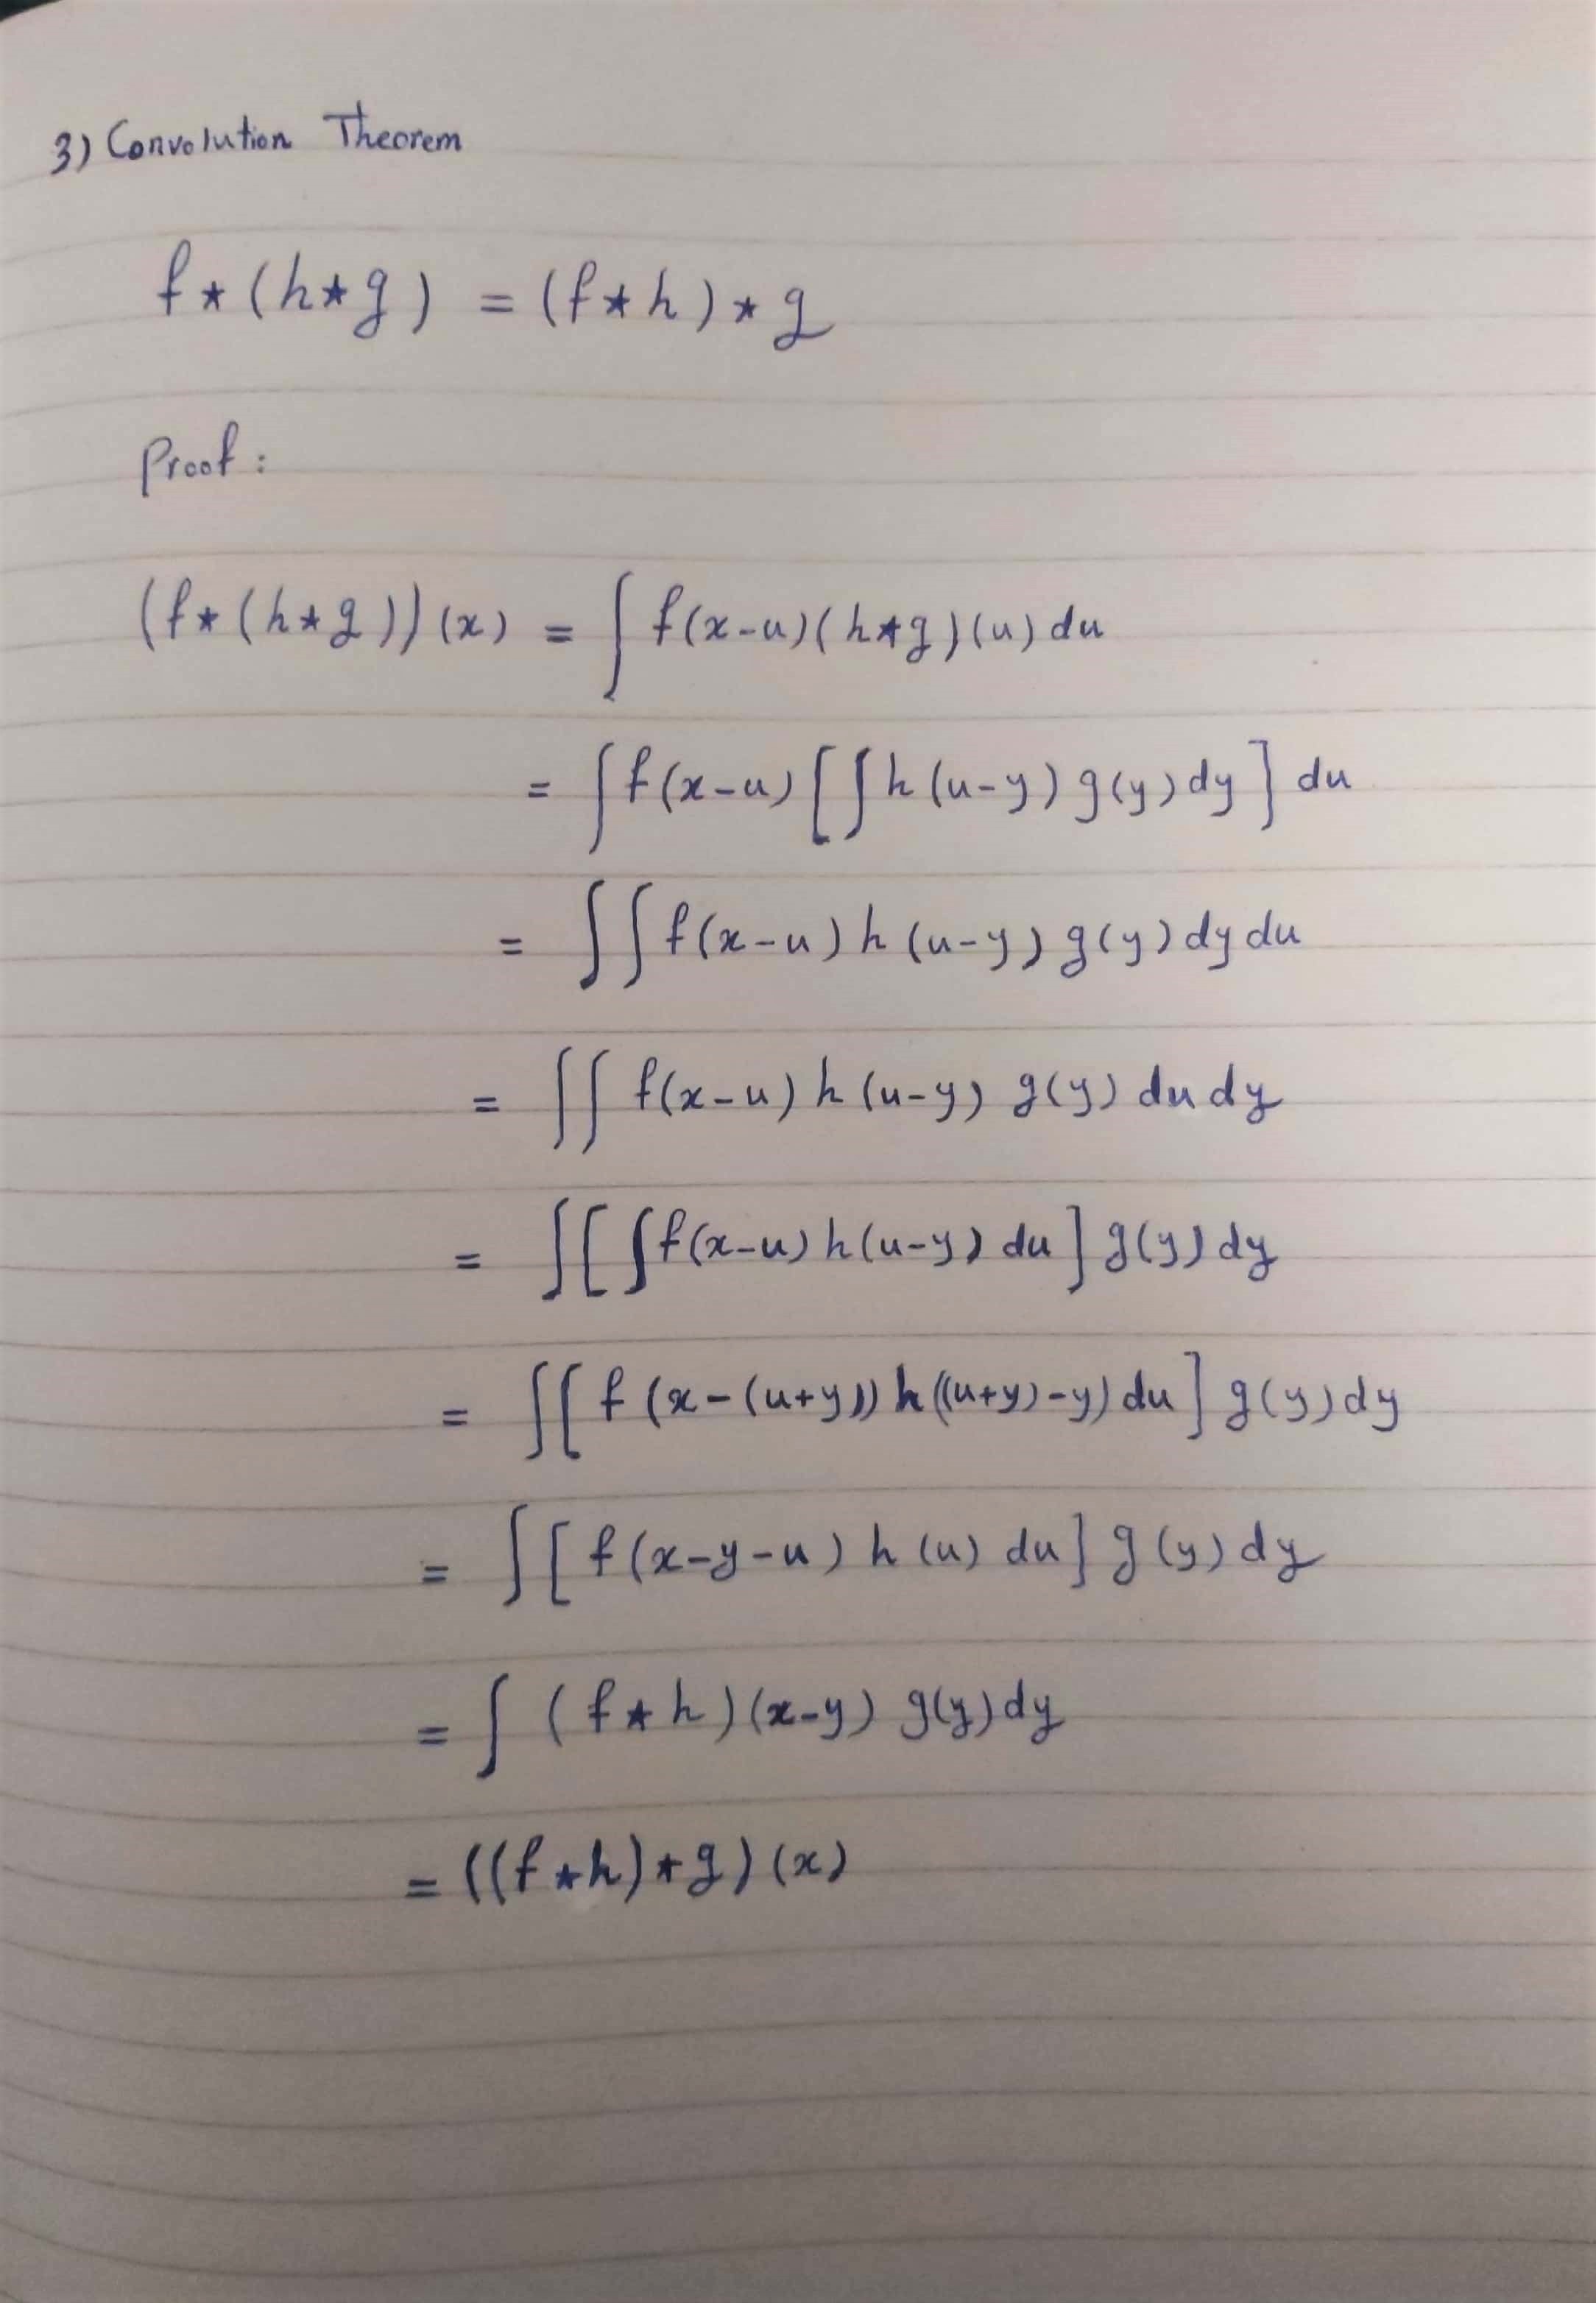 3) Convolution Theorem
f ⋆ (h ⋆ g) = (f ⋆ h) ⋆ g
Proof:
(f ⋆ (h ⋆ g))(x) = ∫ f(x-u)(h ⋆ g)(u) du
= ∫ f(x-u) [∫ h(u-y) g(y) dy] du
= ∫∫ f(x-u) h(u-y) g(y) dy du
= ∫∫ f(x-u) h(u-y) g(y) du dy
= ∫[∫ f(x-u) h(u-y) du] g(y) dy
= ∫[ f(x-(u+y)) h((u+y)-y) du] g(y) dy
= ∫[ f(x-y-u) h(u) du] g(y) dy
= ∫ (f ⋆ h)(x-y) g(y) dy
= ((f ⋆ h) ⋆ g)(x)